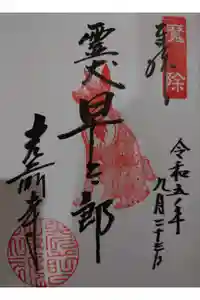 奉拝
魔除
霊犬早太郎
光前寺
令和五年
九月二十三日